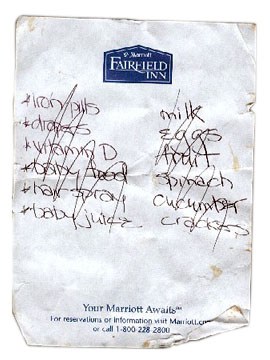 Marriott
FAIRFIELD
INN
*iron pills
*drops
*vitamin D
*baby food
*hair spray
*baby juice
milk
eggs
fruit
spinach
cucumber
crackers
Your Marriott Awaits℠
For reservations or information visit Marriott.co
or call 1-800-228-2800